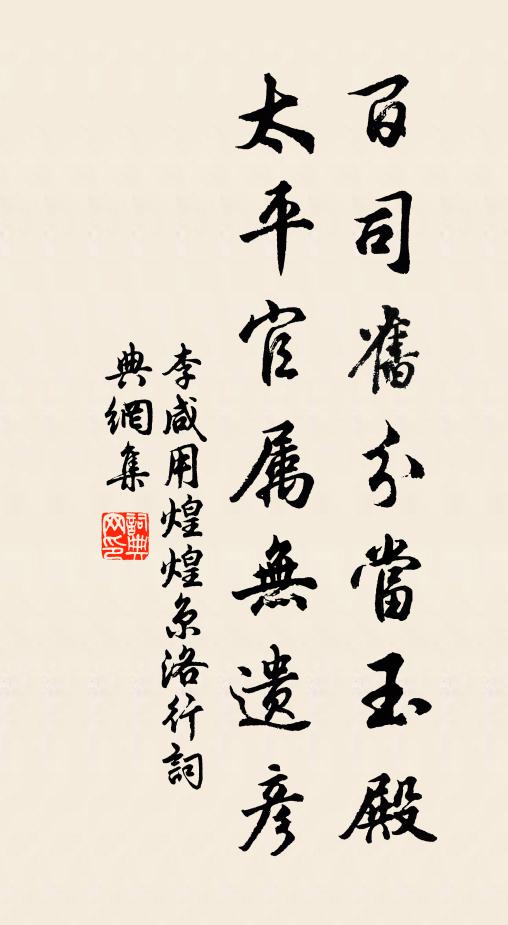 百司舊分當玉殿
太平官属無遺彥
李咸用煌煌京洛行詞
典網集
詞典網印